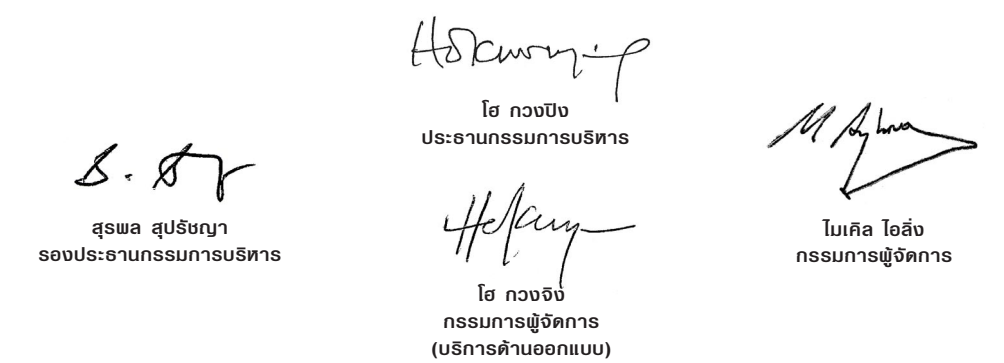 โฮ กวงปิง
ประธานกรรมการบริหาร
สุรพล สุปรัชญา
รองประธานกรรมการบริหาร
โฮ กวงจิง
กรรมการผู้จัดการ
(บริการด้านออกแบบ)
ไมเคิล ไอลิ่ง
กรรมการผู้จัดการ